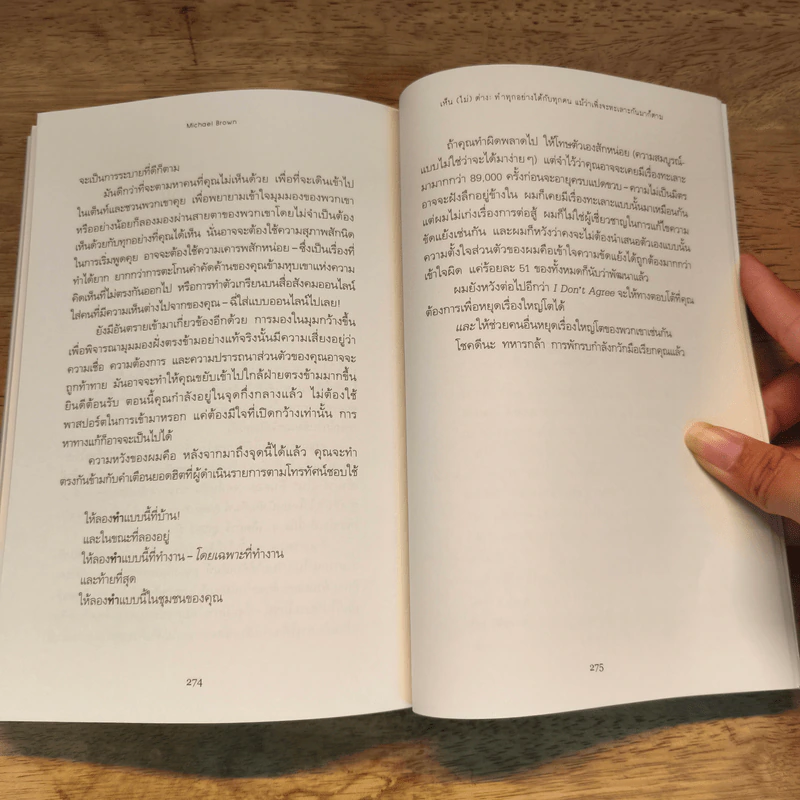 Michael Brown
จะเป็นการระบายที่ดีก็ตาม
มันดีกว่าที่จะตามหาคนที่คุณไม่เห็นด้วย เพื่อที่จะเดินเข้าไป
ในเต็นท์และชวนพวกเขาคุย เพื่อพยายามเข้าใจมุมมองของพวกเขา
หรืออย่างน้อยก็ลองมองผ่านสายตาของพวกเขาโดยไม่จำเป็นต้อง
เห็นด้วยกับทุกอย่างที่คุณได้เห็น นั่นอาจจะต้องใช้ความสุภาพสักนิด
ในการเริ่มพูดคุย อาจจะต้องใช้ความเคารพสักหน่อย – ซึ่งเป็นเรื่องที่
ทำได้ยาก ยากกว่าการตะโกนคำคัดค้านของคุณข้ามหุบเขาแห่งความ
คิดเห็นที่ไม่ตรงกันออกไป หรือการทำตัวเกรียนบนสื่อสังคมออนไลน์
ใส่คนที่มีความเห็นต่างไปจากของคุณ – ฉีใส่แบบออนไลน์ไปเลย!
ยังมีอันตรายเข้ามาเกี่ยวข้องอีกด้วย การมองในมุมกว้างขึ้น
เพื่อพิจารณามุมมองฝั่งตรงข้ามอย่างแท้จริงนั้นมีความเสี่ยงอยู่ว่า
ความเชื่อ ความต้องการ และความปรารถนาส่วนตัวของคุณอาจจะ
ถูกท้าทาย มันอาจจะทำให้คุณขยับเข้าไปใกล้ฝ่ายตรงข้ามมากขึ้น
ยินดีต้อนรับ ตอนนี้คุณกำลังอยู่ในจุดกึ่งกลางแล้ว ไม่ต้องใช้
พาสปอร์ตในการเข้ามาหรอก แค่ต้องมีใจที่เปิดกว้างเท่านั้น การ
หาทางแก้ก็อาจจะเป็นไปได้
ความหวังของผมคือ หลังจากมาถึงจุดนี้ได้แล้ว คุณจะทำ
ตรงกันข้ามกับคำเตือนยอดฮิตที่ผู้ดำเนินรายการตามโทรทัศน์ชอบใช้
ให้ลองทำแบบนี้ที่บ้าน!
และในขณะที่ลองอยู่
ให้ลองทำแบบนี้ที่ทำงาน – โดยเฉพาะที่ทำงาน
และท้ายที่สุด
ให้ลองทำแบบนี้ในชุมชนของคุณ
274
เห็น (ไม่) ต่าง: ทำทุกอย่างได้กับทุกคน แม้ว่าเพิ่งจะทะเลาะกันมาก็ตาม
ถ้าคุณทำผิดพลาดไป ให้โทษตัวเองสักหน่อย (ความสมบูรณ์-
แบบไม่ใช่ว่าจะได้มาง่ายๆ) แต่จำไว้ว่าคุณอาจจะเคยมีเรื่องทะเลาะ
มามากกว่า 89,000 ครั้งก่อนจะอายุครบแปดขวบ – ความไม่เป็นมิตร
อาจจะฝังลึกอยู่ข้างใน ผมก็เคยมีเรื่องทะเลาะแบบนั้นมาเหมือนกัน
แต่ผมไม่เก่งเรื่องการต่อสู้ ผมก็ไม่ใช่ผู้เชี่ยวชาญในการแก้ไขความ
ขัดแย้งเช่นกัน และผมก็หวังว่าคงจะไม่ต้องนำเสนอตัวเองแบบนั้น
ความตั้งใจส่วนตัวของผมคือเข้าใจความขัดแย้งได้ถูกต้องมากกว่า
เข้าใจผิด แค่ร้อยละ 51 ของทั้งหมดก็นับว่าพัฒนาแล้ว
ผมยังหวังต่อไปอีกว่า I Don't Agree จะให้ทางตอบได้ที่คุณ
ต้องการเพื่อหยุดเรื่องใหญ่โตได้
และ ให้ช่วยคนอื่นหยุดเรื่องใหญ่โตของพวกเขาเช่นกัน
โชคดีนะ ทหารกล้า การพักรบกำลังกวักมือเรียกคุณแล้ว
275